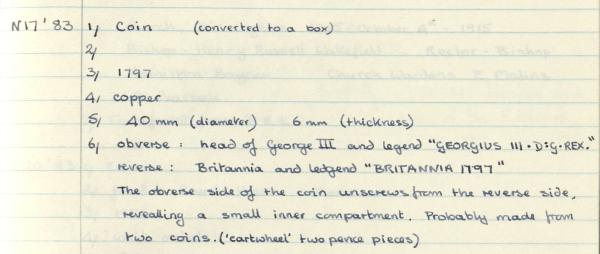 N17'83 1/ Coin (converted to a box)
2/
3/ 1797
4/ copper
5/ 40mm (diameter) 6mm (thickness)
6/ obverse : head of George III and legend "GEORGIUS III·D:G·REX."
reverse : Britannia and ledgend "BRITANNIA 1797"
The obverse side of the coin unscrews from the reverse side,
revealling a small inner compartment. Probably made from
two coins. ('cartwheel' two pence pieces)